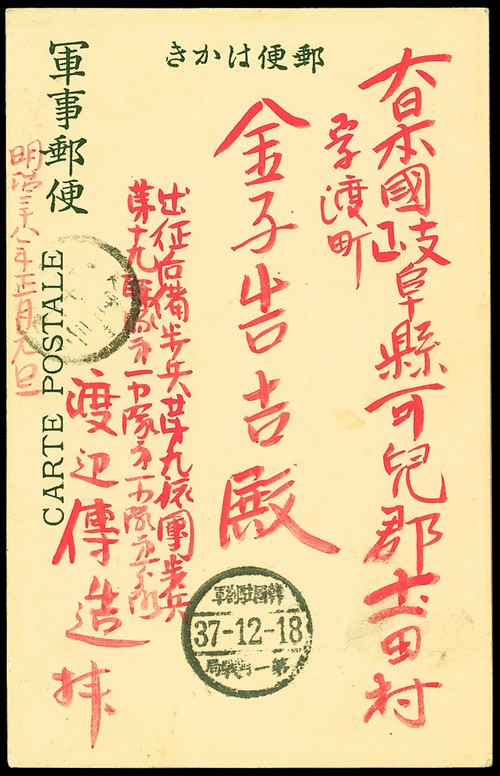 郵便はかき
大日本國岐阜縣可兒郡土田村
字渡町
金子吉吉殿
出征后備歩兵第九旅團歩兵
第十九聯隊第一大隊第一中隊第
渡辺傳造拝
軍事郵便
CARTE POSTALE
明治三十八年正月元旦
韓國駐箚軍
37-12-18
第一野戰局